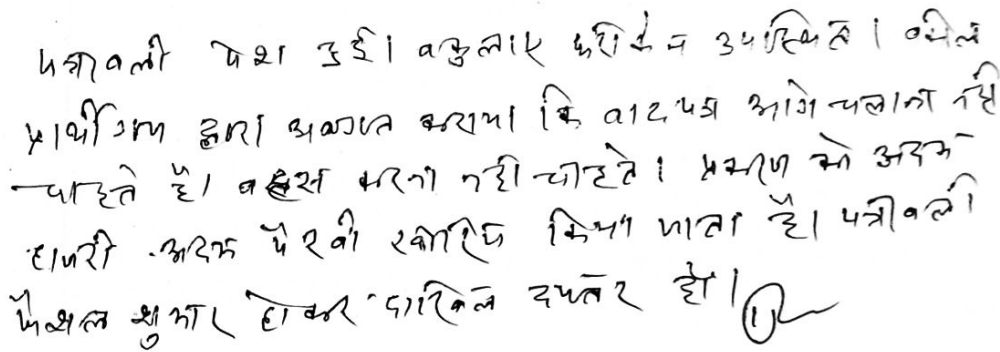 पत्रावली पेश हुई। वकुलाए फरीकैन उपस्थित। वकील
प्रार्थीगण द्वारा अवगत कराया कि वादपत्र आगे चलाना नहीं
चाहते है। बहस करना नही चाहते। प्रकरण को अदम
हाजरी अदम पैरवी खारिज किया जाता है। पत्रावली
फैसल शुमार होकर दाखिल दफ्तर हो।